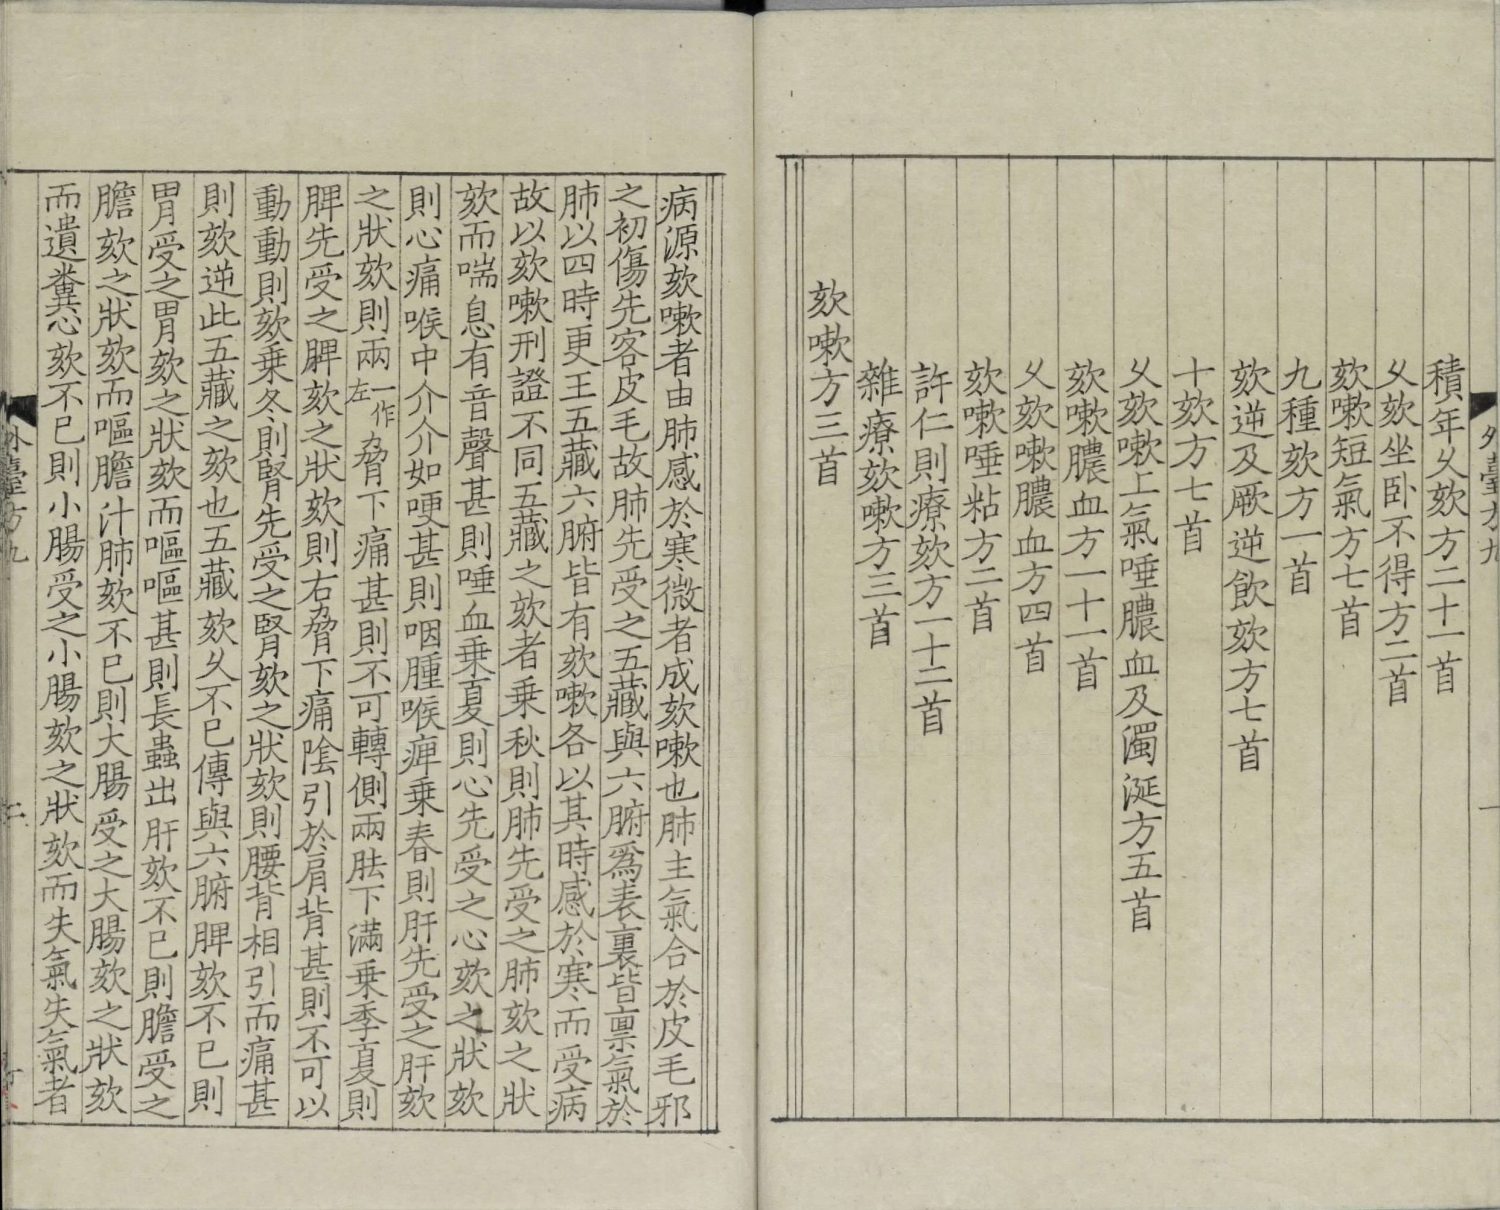 外臺方九
一
積年久欬方二十一首
久欬坐卧不得方二首
欬嗽短氣方七首
九種欬方一首
欬逆及厥逆飲欬方七首
十欬方七首
久欬嗽上氣唾膿血及濁涎方五首
欬嗽膿血方一十一首
久欬嗽膿血方四首
欬嗽唾粘方二首
許仁則療欬方一十二首
雜療欬嗽方三首
欬嗽方三首
病源欬嗽者由肺感於寒微者成欬嗽也肺主氣合於皮毛邪
之初傷先客皮毛故肺先受之五藏與六腑爲表裏皆禀氣於
肺以四時更王五藏六腑皆有欬嗽各以其時感於寒而受病
故以欬嗽刑證不同五藏之欬者乗秋則肺先受之肺欬之狀
欬而喘息有音聲甚則唾血乗夏則心先受之心欬之狀欬
則心痛喉中介介如哽甚則咽腫喉痺乗春則肝先受之肝欬
之狀欬則兩一作左脅下痛甚則不可轉側兩胠下滿乗季夏則
脾先受之脾欬之狀欬則右脅下痛隂引於肩背甚則不可以
動動則欬乗冬則腎先受之腎欬之狀欬則腰背相引而痛甚
則欬逆此五藏之欬也五藏欬久不已傳與六腑脾欬不已則
胃受之胃欬之狀欬而嘔嘔甚則長蟲出肝欬不已則膽受之
膽欬之狀欬而嘔膽汁肺欬不已則大腸受之大腸欬之狀欬
而遺糞心欬不已則小腸受之小腸欬之狀欬而失氣失氣者
外臺方九
二